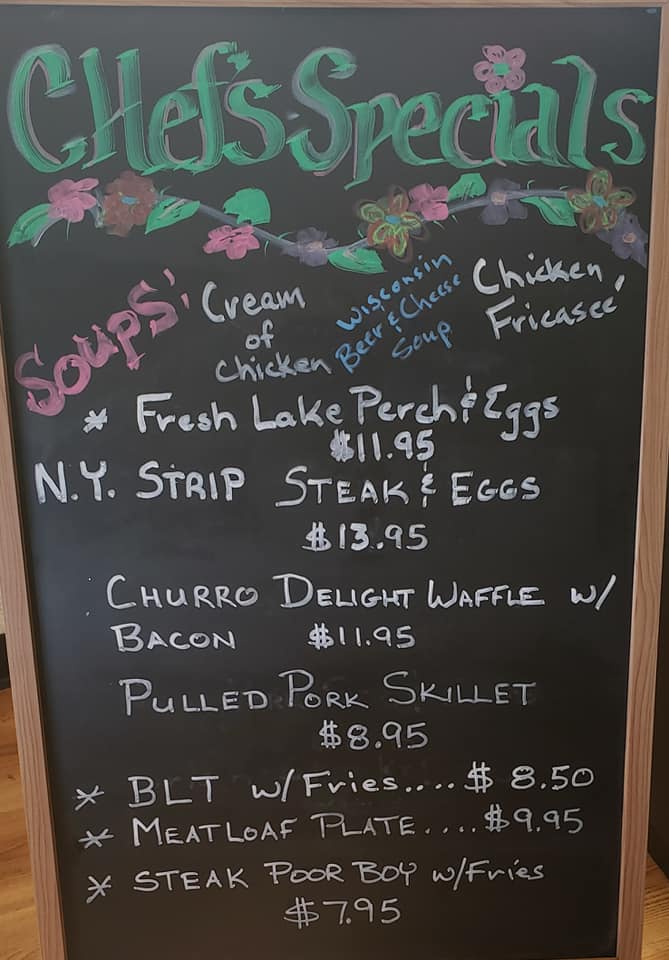 CHef's Specials
Soups'
Cream
of
Chicken
Wisconsin
Beer & Cheese
Soup
Chicken
Fricaseé
* Fresh Lake Perch & Eggs
$11.95
N.Y. STRIP STEAK & EGGS
$13.95
CHURRO DELIGHT WAFFLE w/
BACON $11.95
PULLED PORK SKILLET
$8.95
* BLT w/Fries.... $ 8.50
* MEATLOAF PLATE.... $9.95
* STEAK POOR BOY w/Fries
$7.95